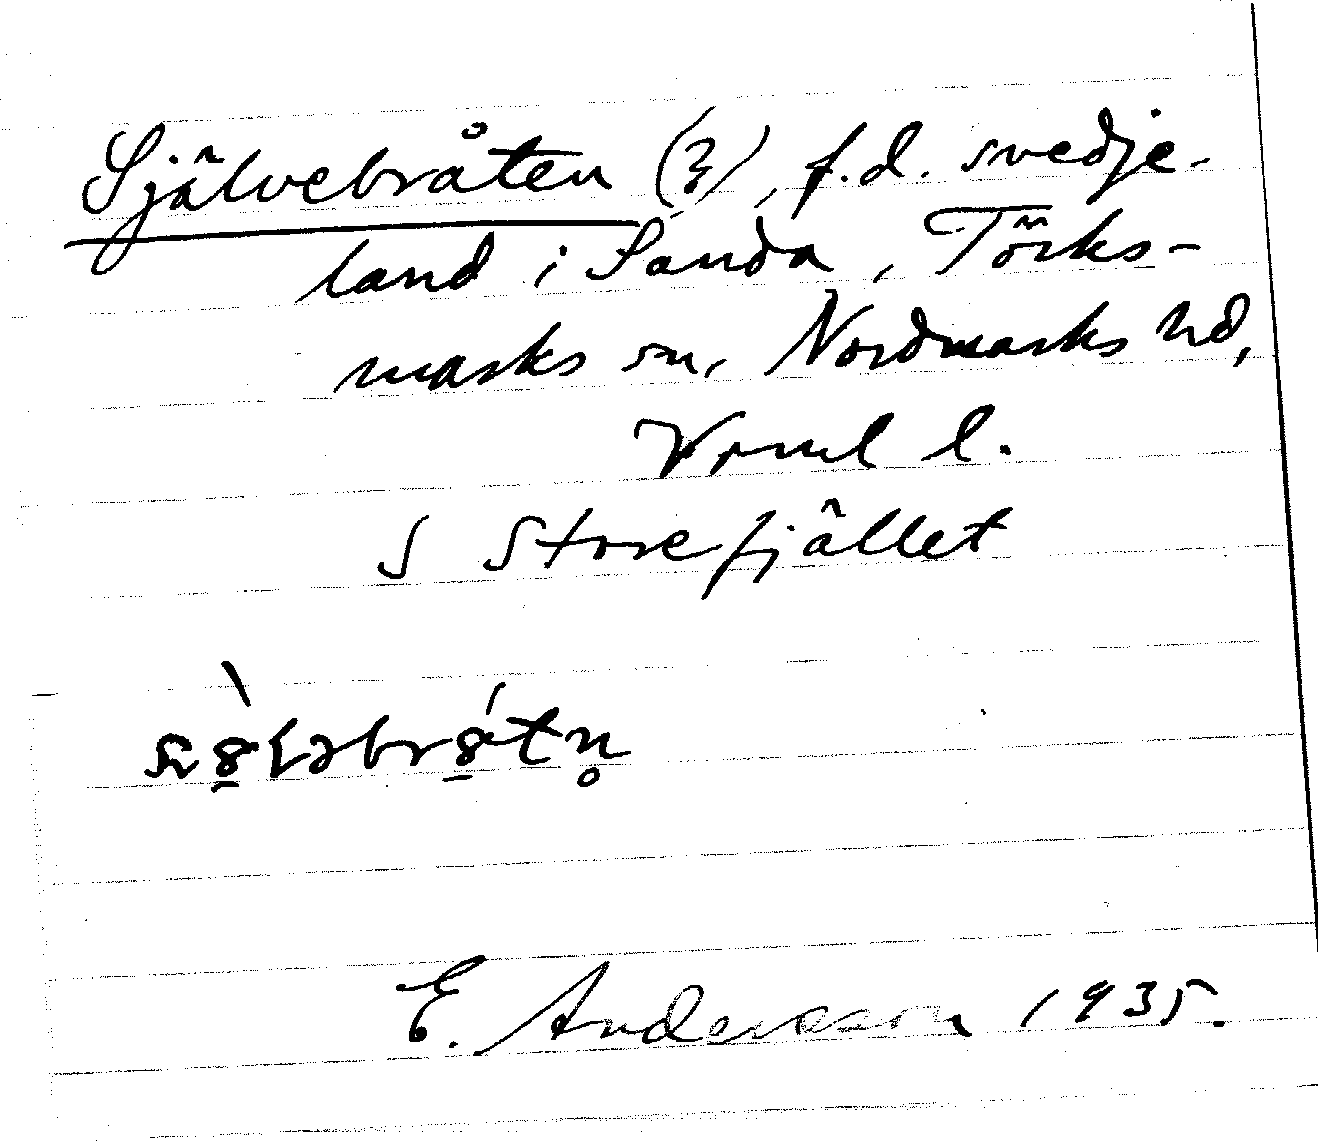 Självebråten (?), f.d. svedje-
land i Sanda, Törks-
marks sn, Nordmarks hd,
Vrml l.
S Storefjället
E. Andersson 1935.